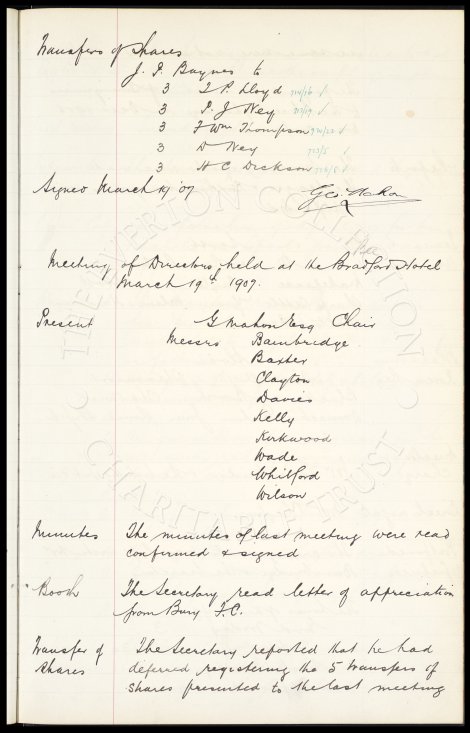 Transfers of Shares
J. P. Baynes to
3 T P. Lloyd 714/16 ✓
3 P. J Ney 717/19 ✓
3 F Wm Thompson 720/22 ✓
3 D Ney 723/5 ✓
3 H C Dickson 726/8 ✓
Signed March 19 '07 Geo. Mahon
Meeting of Directors held at the Bradford Hotel
March 19th 1907.
Present G Mahon Esq Chair
Messrs Bainbridge
Baxter
Clayton
Davies
Kelly
Kirkwood
Wade
Whitford
Wilson
Minutes The minutes of last meeting were read
confirmed & signed
Booth The Secretary read letter of appreciation
from Bury F.C.
Transfer of The Secretary reported that he had
shares deferred registering the 5 transfers of
shares presented to the last meeting
THE EVERTON COLLECTION
CHARITABLE TRUST